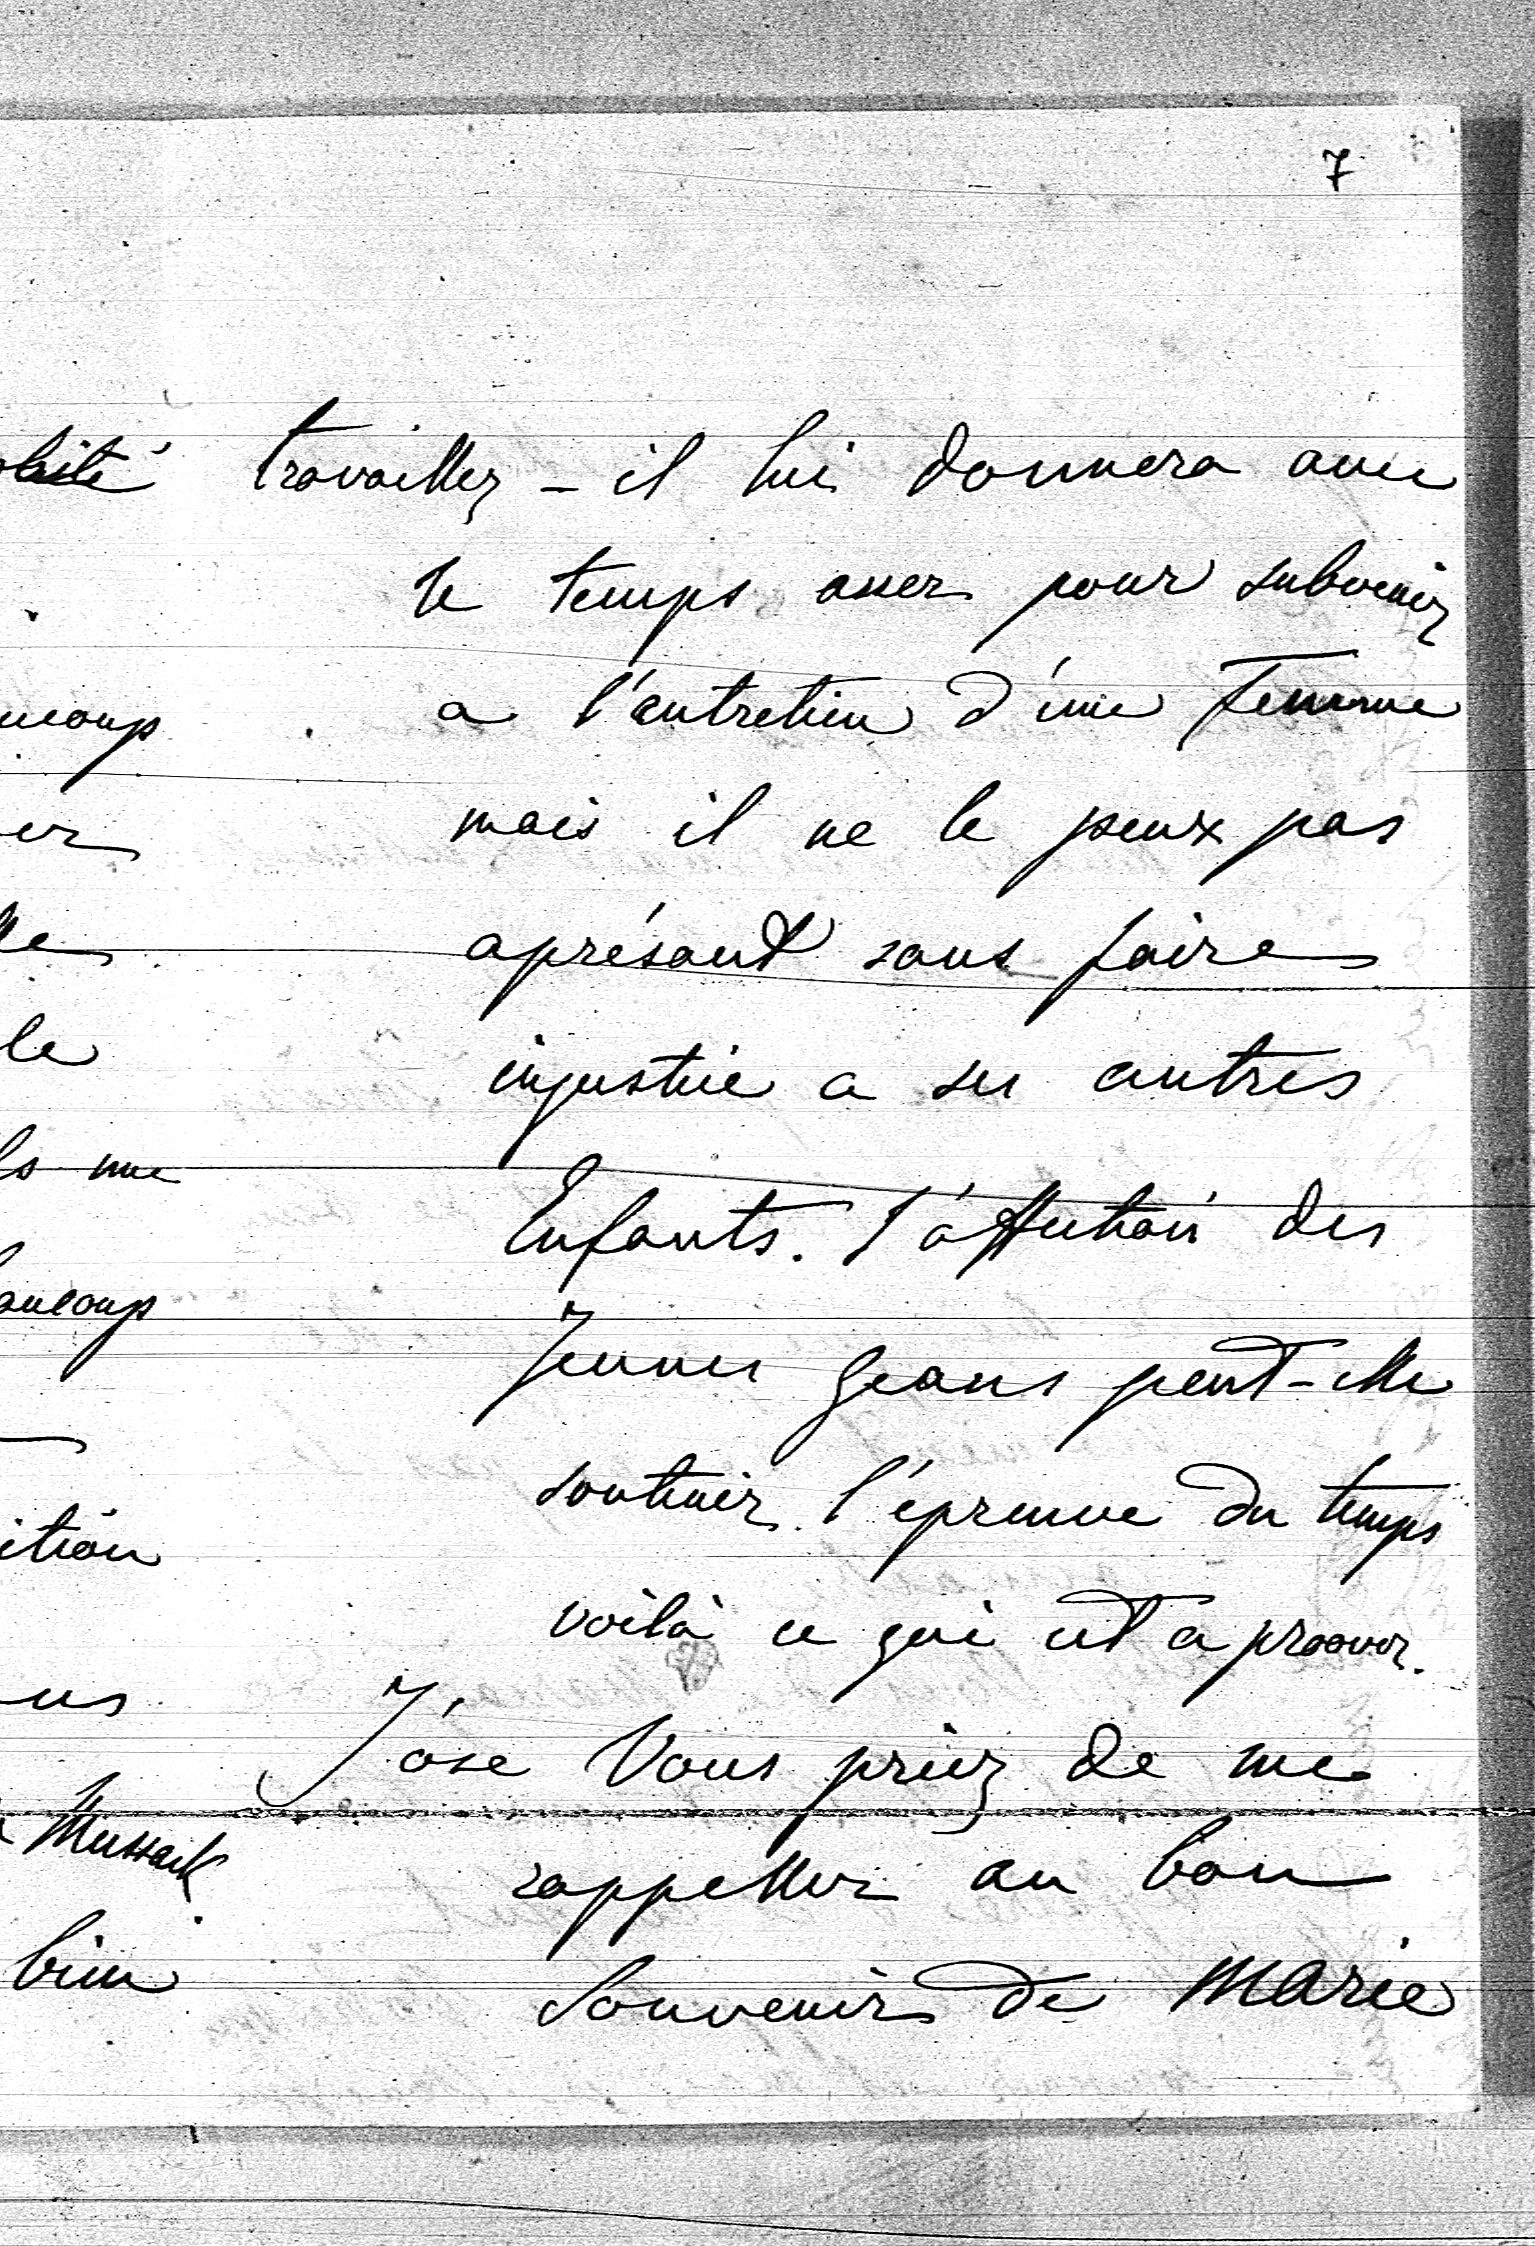 7
travailler - il lui donnera avec
le temps assez pour subvenir
a l'entretien d'une Femme
mais il ne le peux pas
aprésant sans faire
injustice a ses autres
Enfants. l'affection des
Jeunes Geans peut-elle
soutenir l'épreuve du temps
voilà ce qui est a proover.
J'óse Vous prier de me
rappeller au bon
Souvenir de Marie
ucoup
er
le
ls me
aucoup
ition
us
Mussack
bien